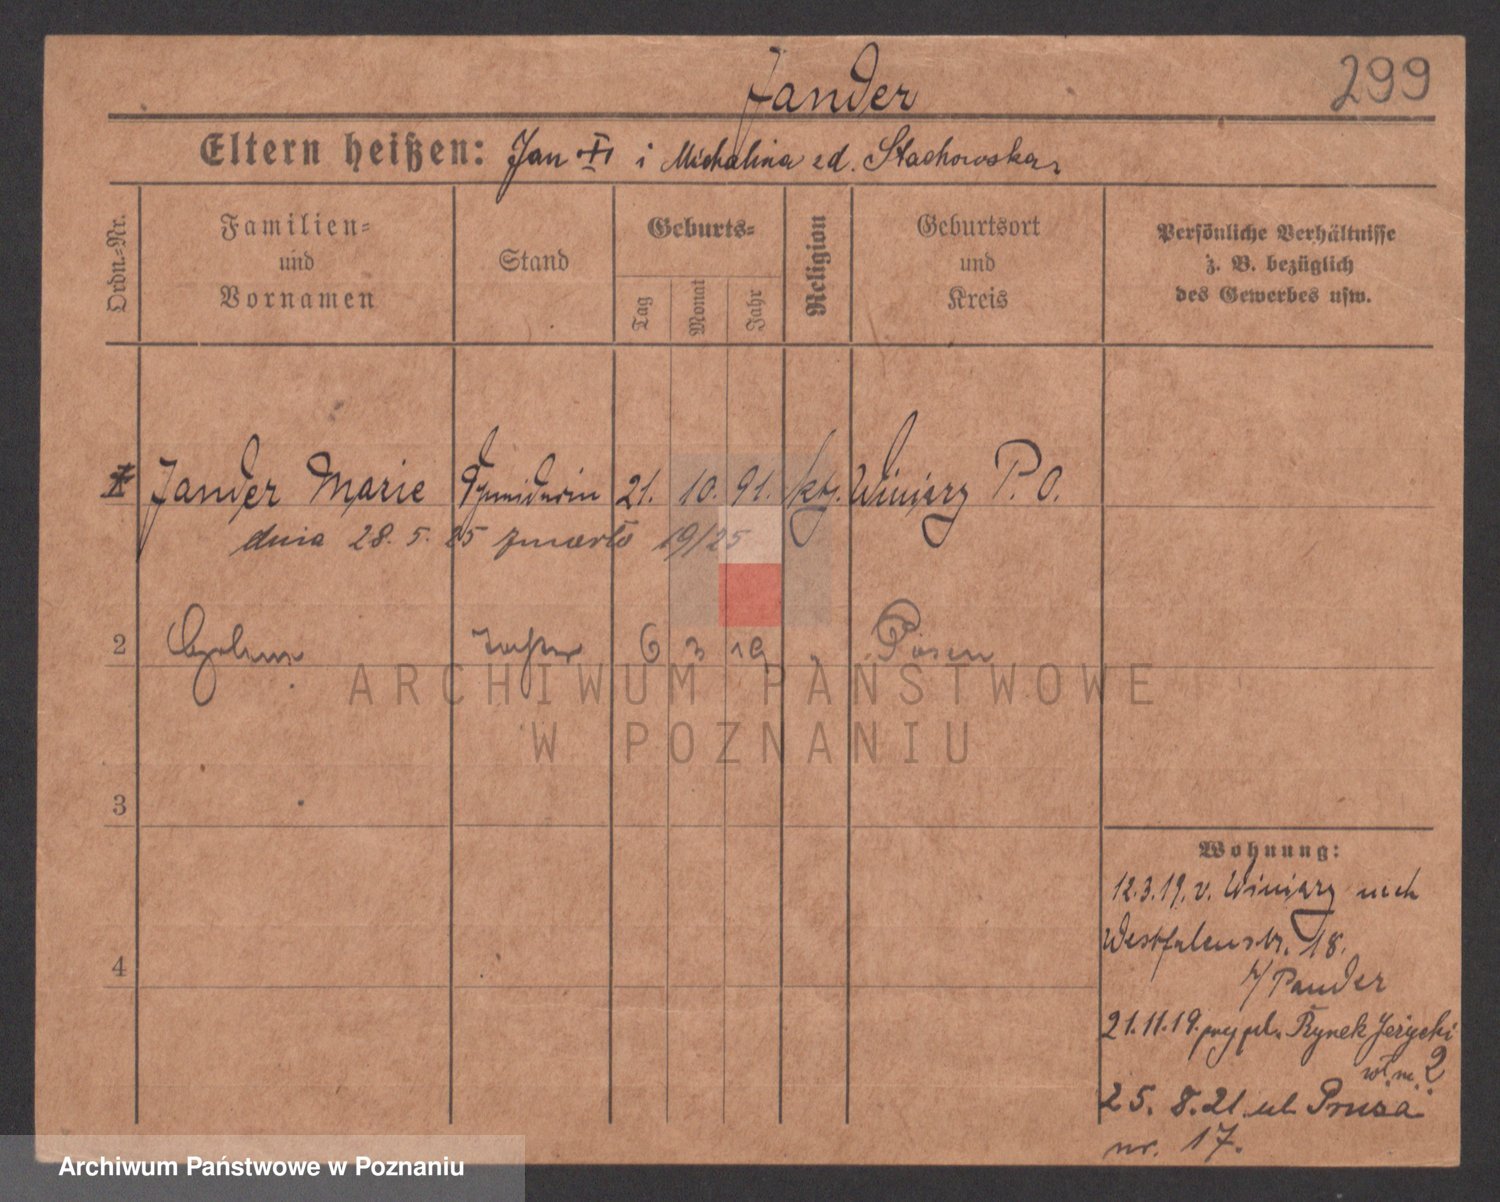 Jander
299
Eltern heißen: Jan I i Michalina zd. Stachowska
Ordn.=Nr.
Familien=
und
Vornamen
Stand
Geburts=
Tag
Monat
Jahr
Religion
Geburtsort
und
Kreis
Persönliche Verhältnisse
z. B. bezüglich
des Gewerbes usw.
1 Jander Marie 21. 10. 91. kth. Winiary P. O.
dnia 28. 5. 25 zmarła 19/25
2 6 3 19 Posen
3
4
Wohnung:
12.3.19. v. Winiary nach
Westfalenstr. 18.
b/ Pander
21.11.19. Rynek Jeżycki
2
25. 8. 21 ul. Prusa
nr. 17.
ARCHIWUM PAŃSTWOWE
W POZNANIU
Archiwum Państwowe w Poznaniu